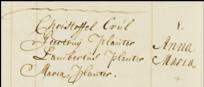 Christoffel Crul
Geertruy Planter
Lambertus Planter
Maria Planter.
Anna
Maria